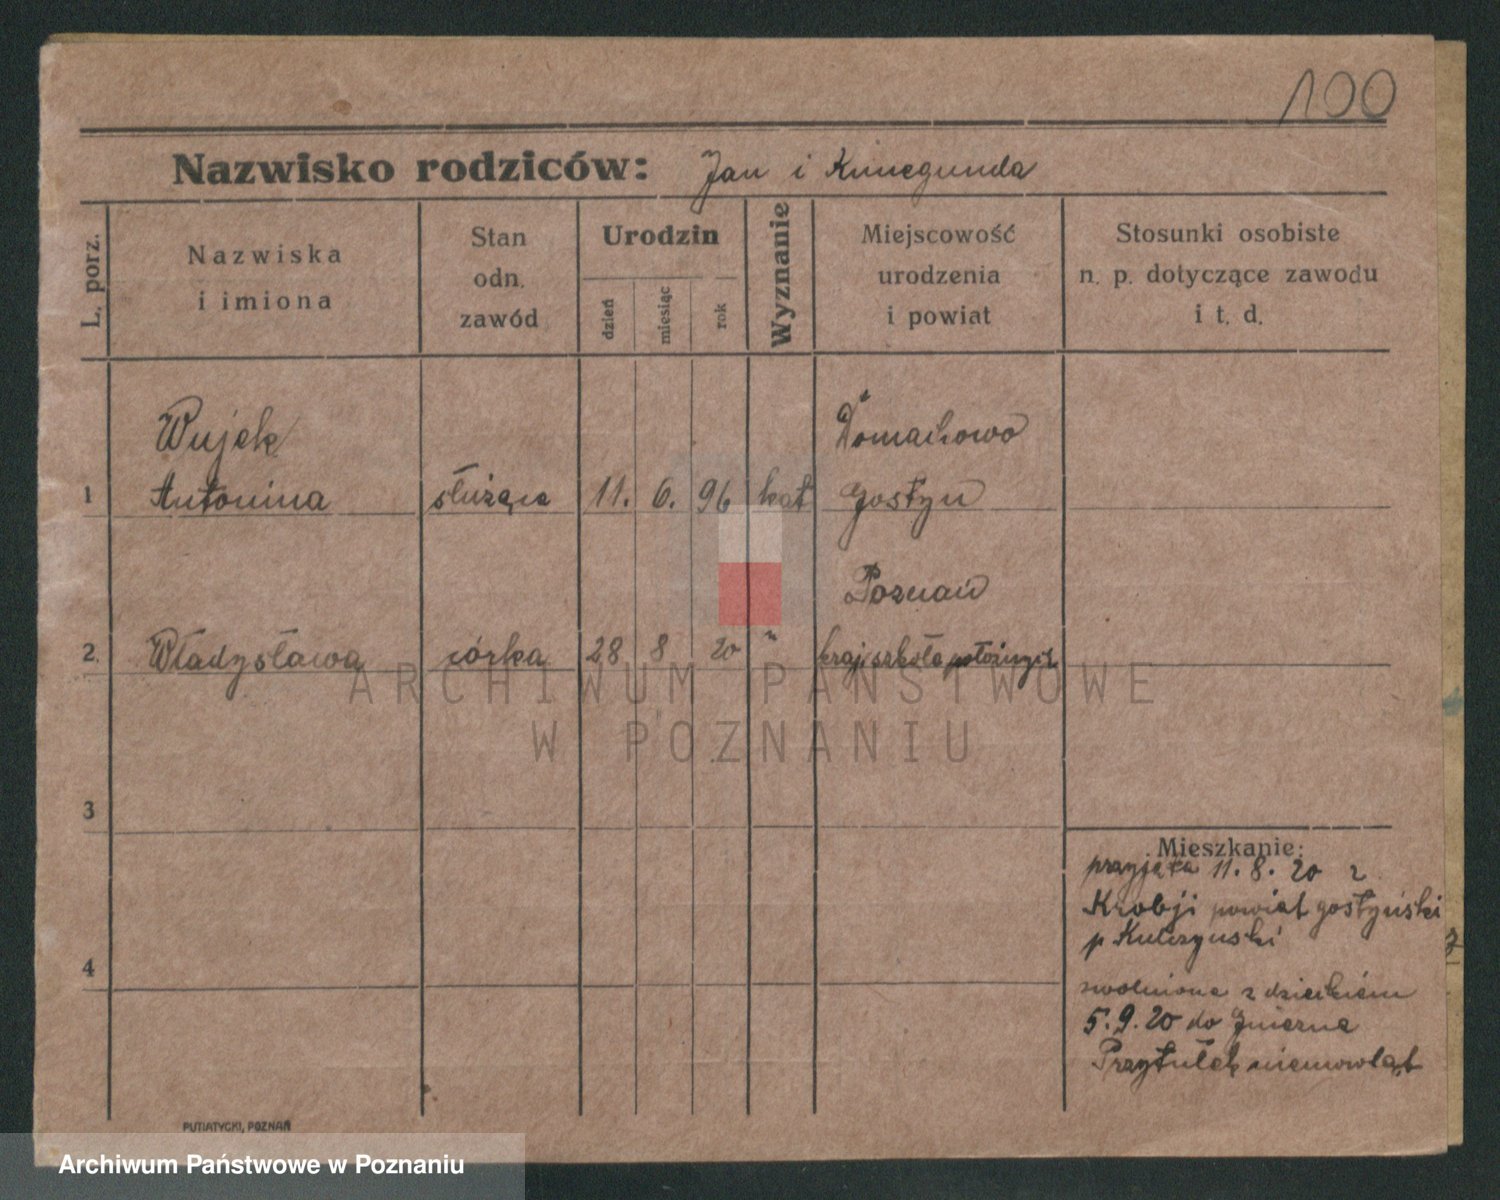 100
Nazwisko rodziców: Jan i Kunegunda
L. porz.
Nazwiska
i imiona
Stan
odn.
zawód
Urodzin
dzień
miesiąc
rok
Wyznanie
Miejscowość
urodzenia
i powiat
Stosunki osobiste
n. p. dotyczące zawodu
i t. d.
Wujek
Domachowo
1 Antonina służąca 11. 6. 96 kat Gostyn
Poznań
2. Władysława córka 28 8 20 " kraj. szkoła położnych
3
4
Mieszkanie:
przyjęta 11.8.20 z
Krobji powiat gostyński
p Kulczynski
zwolniona z dzieckiem
5.9.20 do Gniezna
Przytułek niemowląt
PUTIATYCKI, POZNAŃ
ARCHIWUM PAŃSTWOWE
W POZNANIU
Archiwum Państwowe w Poznaniu